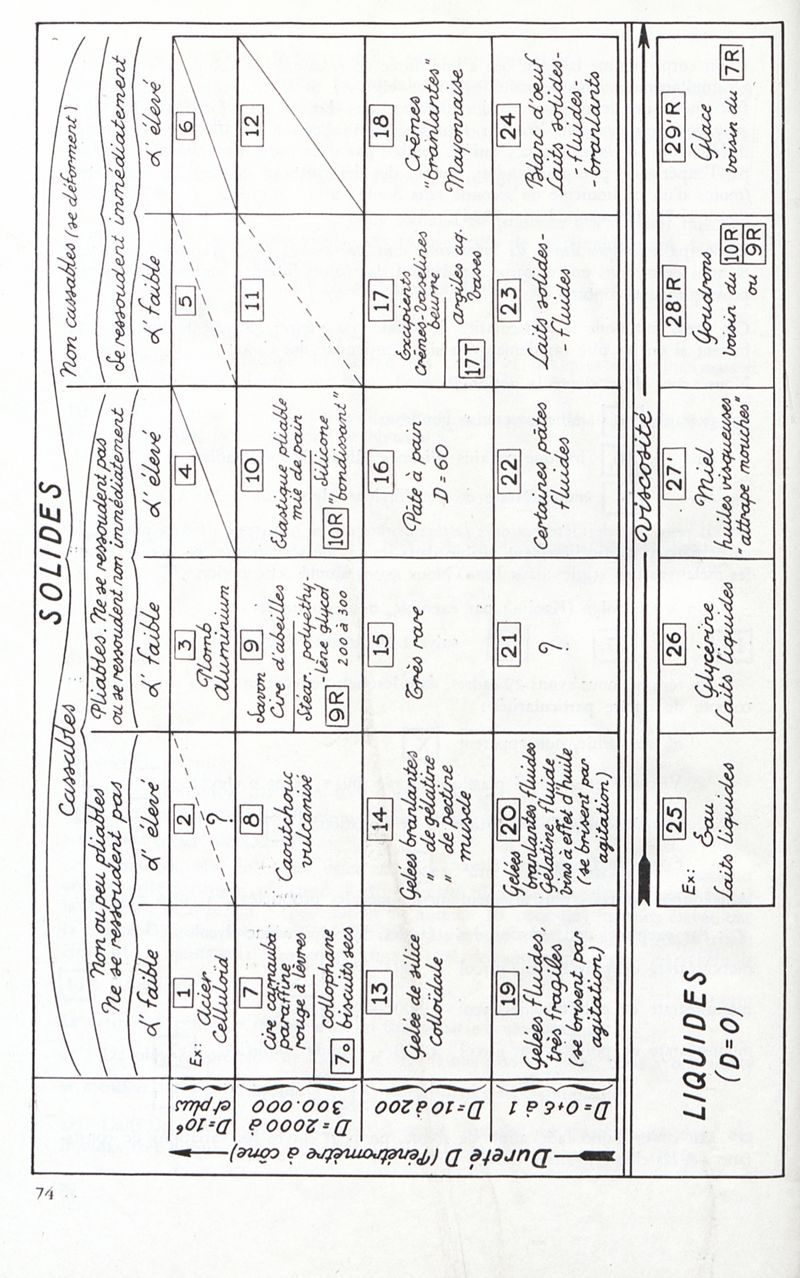 SOLIDES
Cassables
Non cassables (se déforment)
Non ou peu pliables
Ne se ressoudent pas
Pliables. Ne se ressoudent pas
ou se ressoudent non immédiatement
Se ressoudent immédiatement
d' faible
d' élevé
d' faible
d' élevé
d' faible
d' élevé
Dureté D (Pénétromètre à cône)
D=10⁶
et plus
1
Ex: Acier
Celluloïd
2
?
3
Plomb
Aluminium
4
5
6
D=2000 à
300.000
7
Cire carnauba
paraffine
rouge à lèvres
7o
collophane
biscuits secs
8
Caoutchouc
vulcanisé
9
Savon
Cire d'abeilles
Stéar. polyéthy-
-lène glycol
9R
200 à 300
10
Elastique pliable
mie de pain
10R
"Silicone
bondissent"
11
12
D=10 à 200
13
Gelée de silice
colloïdule
14
Gelées branlantes
" de gélatine
" de pectine
muscle
15
Très rare
16
Pâte à pain
D=60
17
Excipients
Crèmes-vaselines
beurre
17T
Argiles aq.
vases
18
Crèmes
"branlantes"
Mayonnaise
D=0,5 à 1
19
Gelées fluides,
très fragiles,
(se brisent par
agitation)
20
Gelées
branlantes fluides
gélatine fluide
vins à effet d'huile
(se brisent par
agitation)
21
?
22
Certaines pâtes
fluides
23
Laits solides-
-fluides
24
Blanc d'oeuf
Laits solides-
-fluides-
-branlants
Viscosité
LIQUIDES
(D=0)
25
Ex: Eau
Laits liquides
26
Glycérine
Laits liquides
27'
Miel
huiles visqueuses
"attrape mouches"
28'R
Goudrons
voisin du 10R
ou 9R
29'R
Glace
voisin du 7R
74